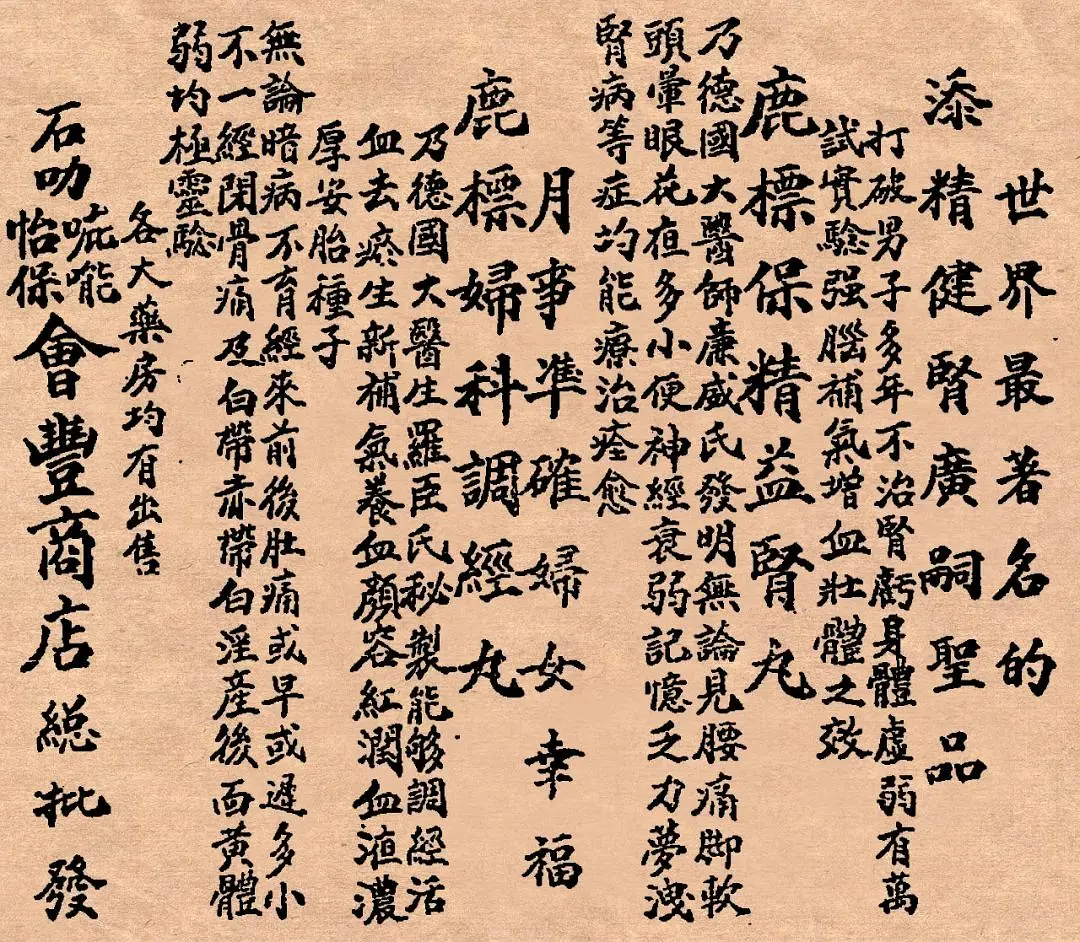 世界最著名的
添精健腎廣嗣聖品
打破男子多年不治腎虧身體虛弱有萬
試實驗强腦補氣增血壯體之效
鹿標保精益腎丸
乃德國大醫師廉威氏發明無論見腰痛脚軟
頭暈眼花夜多小便神經衰弱記憶乏力夢洩
腎病等症均能療治痊愈
月事準確婦女幸福
鹿標婦科調經丸
乃德國大醫生羅臣氏秘製能够調經活
血去瘀生新補氣養血顏容紅潤血液濃
厚安胎種子
無論暗病不育經來前後肚痛或早或遲多小
不一經閉骨痛及白帶赤帶白淫產後面黃體
弱均極靈驗
各大藥房均有出售
石叻
怡保
會豐商店總批發